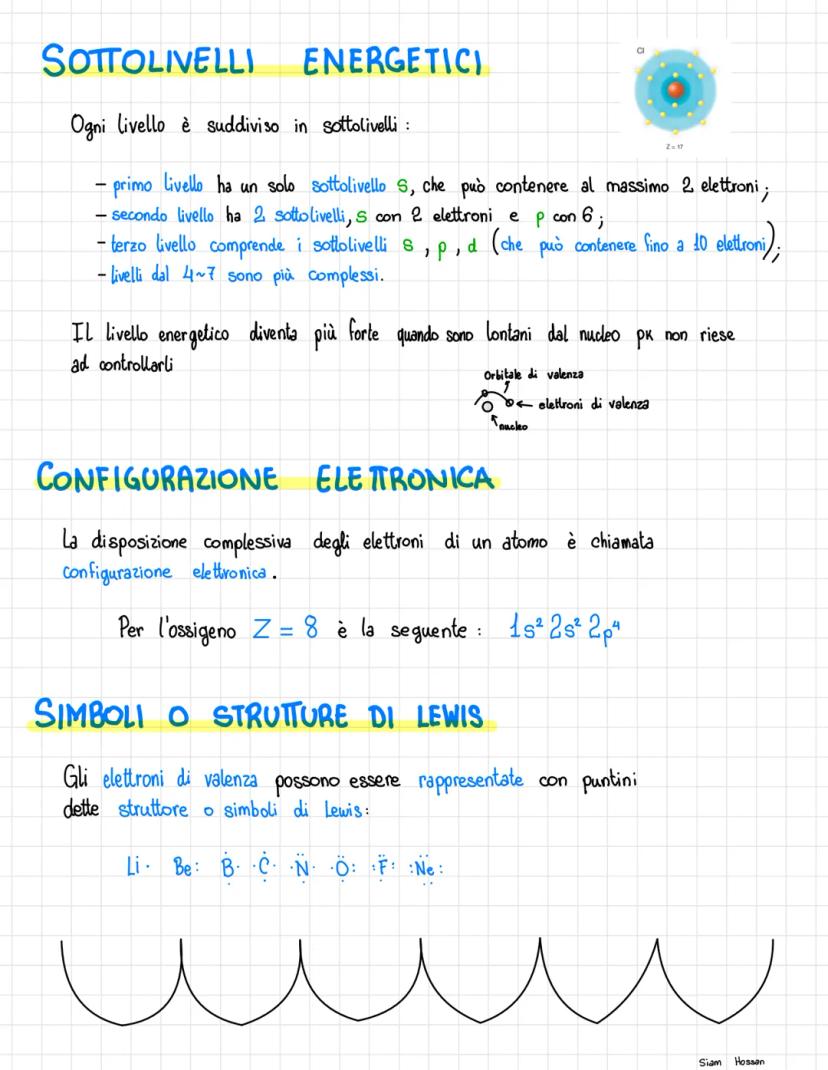 SOTTOLIVELLI ENERGETICI
Cl
Z = 17
Ogni livello è suddiviso in sottolivelli :
- primo livello ha un solo sottolivello s, che può contenere al massimo 2 elettroni ;
- secondo livello ha 2 sottolivelli, s con 2 elettroni e p con 6 ;
- terzo livello comprende i sottolivelli s , p , d (che può contenere fino a 10 elettroni) ;
- livelli dal 4~7 sono più complessi.
Il livello energetico diventa più forte quando sono lontani dal nucleo pk non riese
ad controllarli
Orbitale di valenza
elettroni di valenza
nucleo
CONFIGURAZIONE ELETTRONICA
La disposizione complessiva degli elettroni di un atomo è chiamata
configurazione elettronica .
Per l'ossigeno Z = 8 è la seguente : 1s² 2s² 2p⁴
SIMBOLI O STRUTTURE DI LEWIS
Gli elettroni di valenza possono essere rappresentate con puntini
dette struttore o simboli di Lewis :
Li· Be: B· ·C· ·N· ·O: :F: :Ne:
Siam Hossan